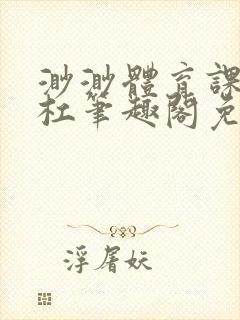 渺渺體育課
杜筆趣閣免
浮屠妖